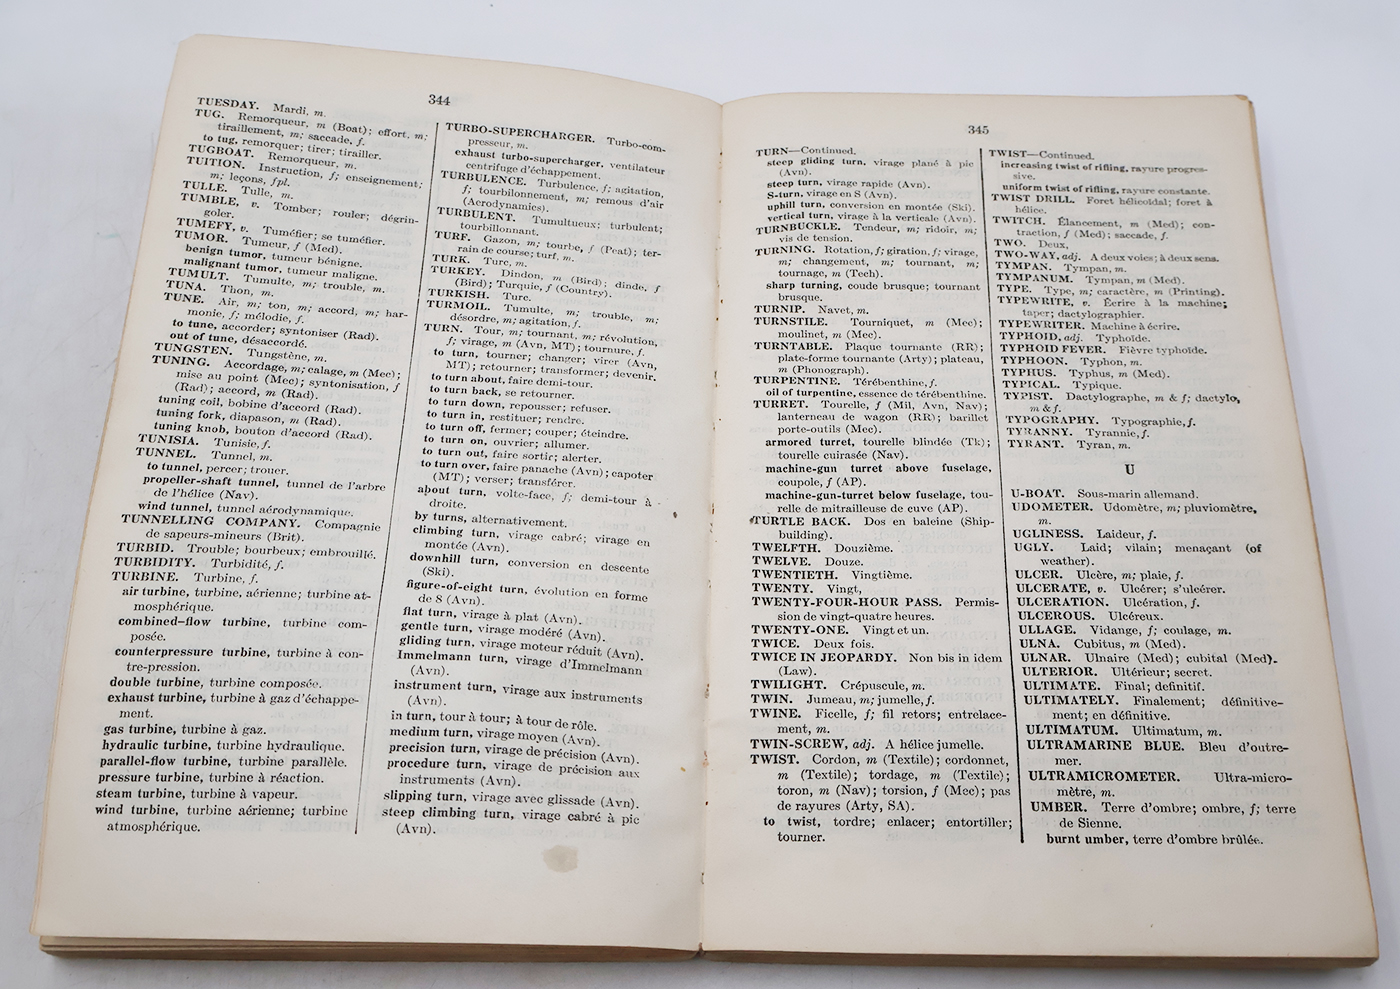 344
TUESDAY. Mardi, m.
TUG. Remorqueur, m (Boat); effort, m;
tiraillement, m; saccade, f.
to tug, remorquer; tirer; tirailler.
TUGBOAT. Remorqueur, m.
TUITION. Instruction, f; enseignement;
m; leçons, fpl.
TULLE. Tulle, m.
TUMBLE, v. Tomber; rouler; dégrin-
goler.
TUMEFY, v. Tuméfier; se tuméfier.
TUMOR. Tumeur, f (Med).
benign tumor, tumeur bénigne.
malignant tumor, tumeur maligne.
TUMULT. Tumulte, m; trouble, m.
TUNA. Thon, m.
TUNE. Air, m; ton, m; accord, m; har-
monie, f; mélodie, f.
to tune, accorder; syntoniser (Rad).
out of tune, désaccordé.
TUNGSTEN. Tungstène, m.
TUNING. Accordage, m; calage, m (Mec);
mise au point (Mec); syntonisation, f
(Rad); accord, m (Rad).
tuning coil, bobine d'accord (Rad).
tuning fork, diapason, m (Rad).
tuning knob, bouton d'accord (Rad).
TUNISIA. Tunisie, f.
TUNNEL. Tunnel, m.
to tunnel, percer; trouer.
propeller-shaft tunnel, tunnel de l'arbre
de l'hélice (Nav).
wind tunnel, tunnel aérodynamique.
TUNNELLING COMPANY. Compagnie
de sapeurs-mineurs (Brit).
TURBID. Trouble; bourbeux; embrouillé.
TURBIDITY. Turbidité, f.
TURBINE. Turbine, f.
air turbine, turbine, aérienne; turbine at-
mosphérique.
combined-flow turbine, turbine com-
posée.
counterpressure turbine, turbine à con-
tre-pression.
double turbine, turbine composée.
exhaust turbine, turbine à gaz d'échappe-
ment.
gas turbine, turbine à gaz.
hydraulic turbine, turbine hydraulique.
parallel-flow turbine, turbine parallèle.
pressure turbine, turbine à réaction.
steam turbine, turbine à vapeur.
wind turbine, turbine aérienne; turbine
atmosphérique.
TURBO-SUPERCHARGER. Turbo-com-
presseur, m.
exhaust turbo-supercharger, ventilateur
centrifuge d'échappement.
TURBULENCE. Turbulence, f; agitation,
f; tourbillonnement, m; remous d'air
(Aerodynamics).
TURBULENT. Tumultueux; turbulent;
tourbillonnant.
TURF. Gazon, m; tourbe, f (Peat); ter-
rain de course; turf, m.
TURK. Turc, m.
TURKEY. Dindon, m (Bird); dinde, f
(Bird); Turquie, f (Country).
TURKISH. Turc.
TURMOIL. Tumulte, m; trouble, m;
désordre, m; agitation, f.
TURN. Tour, m; tournant, m; révolution,
f; virage, m (Avn, MT); tournure, f.
to turn, tourner; changer; virer (Avn,
MT); retourner; transformer; devenir.
to turn about, faire demi-tour.
to turn back, se retourner.
to turn down, repousser; refuser.
to turn in, restituer; rendre.
to turn off, fermer; couper; éteindre.
to turn on, ouvrier; allumer.
to turn out, faire sortir; alerter.
to turn over, faire panache (Avn); capoter
(MT); verser; transférer.
about turn, volte-face, f; demi-tour à
droite.
by turns, alternativement.
climbing turn, virage cabré; virage en
montée (Avn).
downhill turn, conversion en descente
(Ski).
figure-of-eight turn, évolution en forme
de 8 (Avn).
flat turn, virage à plat (Avn).
gentle turn, virage modéré (Avn).
gliding turn, virage moteur réduit (Avn).
Immelmann turn, virage d'Immelmann
(Avn).
instrument turn, virage aux instruments
(Avn).
in turn, tour à tour; à tour de rôle.
medium turn, virage moyen (Avn).
precision turn, virage de précision (Avn).
procedure turn, virage de précision aux
instruments (Avn).
slipping turn, virage avec glissade (Avn).
steep climbing turn, virage cabré à pic
(Avn).
345
TURN—Continued.
steep gliding turn, virage plané à pic
(Avn).
steep turn, virage rapide (Avn).
S-turn, virage en S (Avn).
uphill turn, conversion en montée (Ski).
vertical turn, virage à la verticale (Avn).
TURNBUCKLE. Tendeur, m; ridoir, m;
vis de tension.
TURNING. Rotation, f; giration, f; virage,
m; changement, m; tournant, m;
tournage, m (Tech).
sharp turning, coude brusque; tournant
brusque.
TURNIP. Navet, m.
TURNSTILE. Tourniquet, m (Mec);
moulinet, m (Mec).
TURNTABLE. Plaque tournante (RR);
plate-forme tournante (Arty); plateau,
m (Phonograph).
TURPENTINE. Térébenthine, f.
oil of turpentine, essence de térébenthine.
TURRET. Tourelle, f (Mil, Avn, Nav);
lanterneau de wagon (RR); barillet
porte-outils (Mec).
armored turret, tourelle blindée (Tk);
tourelle cuirasée (Nav).
machine-gun turret above fuselage,
coupole, f (AP).
machine-gun-turret below fuselage, tou-
relle de mitrailleuse de cuve (AP).
TURTLE BACK. Dos en baleine (Ship-
building).
TWELFTH. Douzième.
TWELVE. Douze.
TWENTIETH. Vingtième.
TWENTY. Vingt,
TWENTY-FOUR-HOUR PASS. Permis-
sion de vingt-quatre heures.
TWENTY-ONE. Vingt et un.
TWICE. Deux fois.
TWICE IN JEOPARDY. Non bis in idem
(Law).
TWILIGHT. Crépuscule, m.
TWIN. Jumeau, m; jumelle, f.
TWINE. Ficelle, f; fil retors; entrelace-
ment, m.
TWIN-SCREW, adj. A hélice jumelle.
TWIST. Cordon, m (Textile); cordonnet,
m (Textile); tordage, m (Textile);
toron, m (Nav); torsion, f (Mec); pas
de rayures (Arty, SA).
to twist, tordre; enlacer; entortiller;
tourner.
TWIST—Continued.
increasing twist of rifling, rayure progres-
sive.
uniform twist of rifling, rayure constante.
TWIST DRILL. Foret hélicoïdal; foret à
hélice.
TWITCH. Élancement, m (Med); con-
traction, f (Med); saccade, f.
TWO. Deux,
TWO-WAY, adj. A deux voies; à deux sens.
TYMPAN. Tympan, m.
TYMPANUM. Tympan, m (Med).
TYPE. Type, m; caractère, m (Printing).
TYPEWRITE, v. Écrire à la machine;
taper; dactylographier.
TYPEWRITER. Machine à écrire.
TYPHOID, adj. Typhoïde.
TYPHOID FEVER. Fièvre typhoïde.
TYPHOON. Typhon, m.
TYPHUS. Typhus, m (Med).
TYPICAL. Typique.
TYPIST. Dactylographe, m & f; dactylo,
m & f.
TYPOGRAPHY. Typographie, f.
TYRANNY. Tyrannie, f.
TYRANT. Tyran, m.
U
U-BOAT. Sous-marin allemand.
UDOMETER. Udomètre, m; pluviomètre,
m.
UGLINESS. Laideur, f.
UGLY. Laid; vilain; menaçant (of
weather).
ULCER. Ulcère, m; plaie, f.
ULCERATE, v. Ulcérer; s'ulcérer.
ULCERATION. Ulcération, f.
ULCEROUS. Ulcéreux.
ULLAGE. Vidange, f; coulage, m.
ULNA. Cubitus, m (Med).
ULNAR. Ulnaire (Med); cubital (Med).
ULTERIOR. Ultérieur; secret.
ULTIMATE. Final; definitif.
ULTIMATELY. Finalement; définitive-
ment; en définitive.
ULTIMATUM. Ultimatum, m.
ULTRAMARINE BLUE. Bleu d'outre-
mer.
ULTRAMICROMETER. Ultra-micro-
mètre, m.
UMBER. Terre d'ombre; ombre, f; terre
de Sienne.
burnt umber, terre d'ombre brûlée.